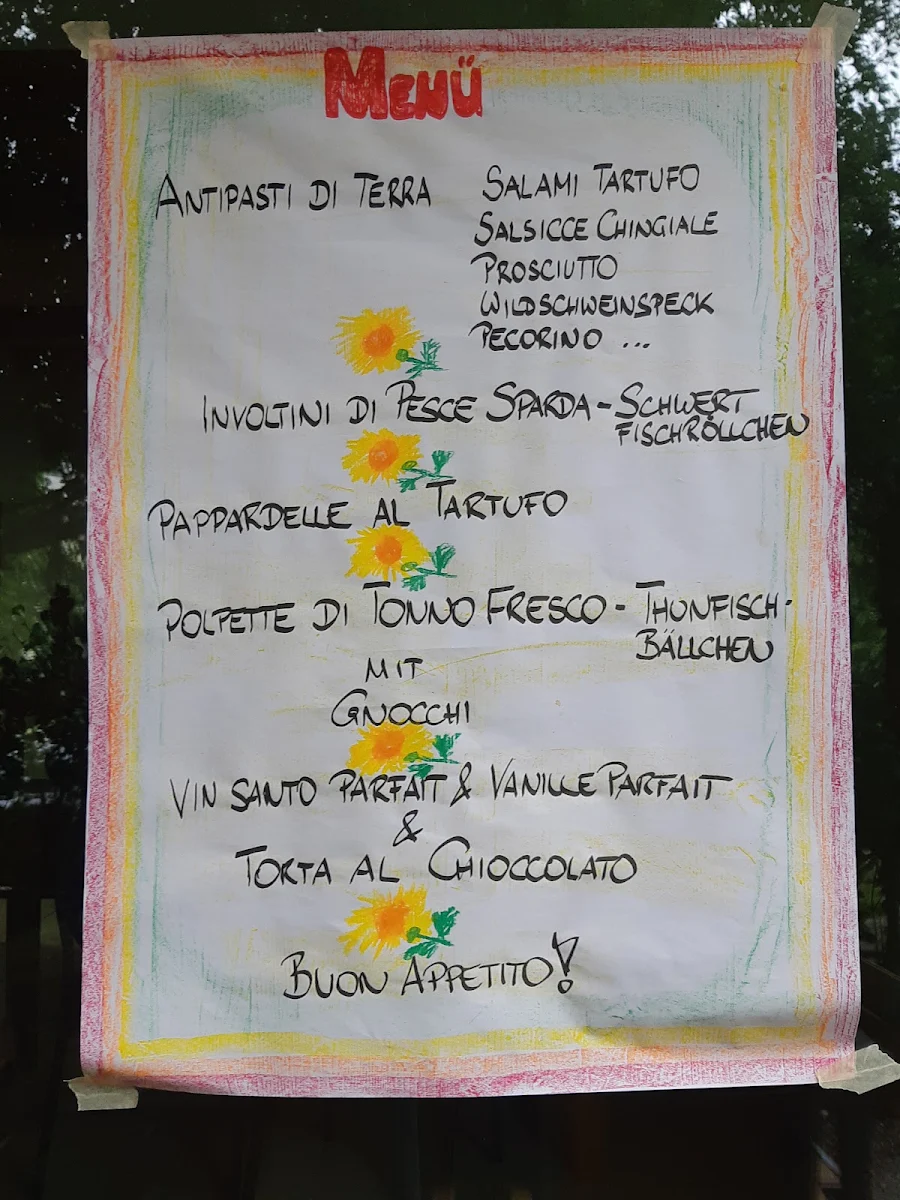 MENÜ
ANTIPASTI DI TERRA SALAMI TARTUFO
SALSICCE CHINGIALE
PROSCIUTTO
WILDSCHWEINSPECK
PECORINO ...
INVOLTINI DI PESCE SPARDA - SCHWERT
FISCHRÖLLCHEN
PAPPARDELLE AL TARTUFO
POLPETTE DI TONNO FRESCO - THUNFISCH-
BÄLLCHEN
MIT
GNOCCHI
VIN SANTO PARFAIT & VANILLE PARFAIT
&
TORTA AL CHIOCCOLATO
BUON APPETITO!